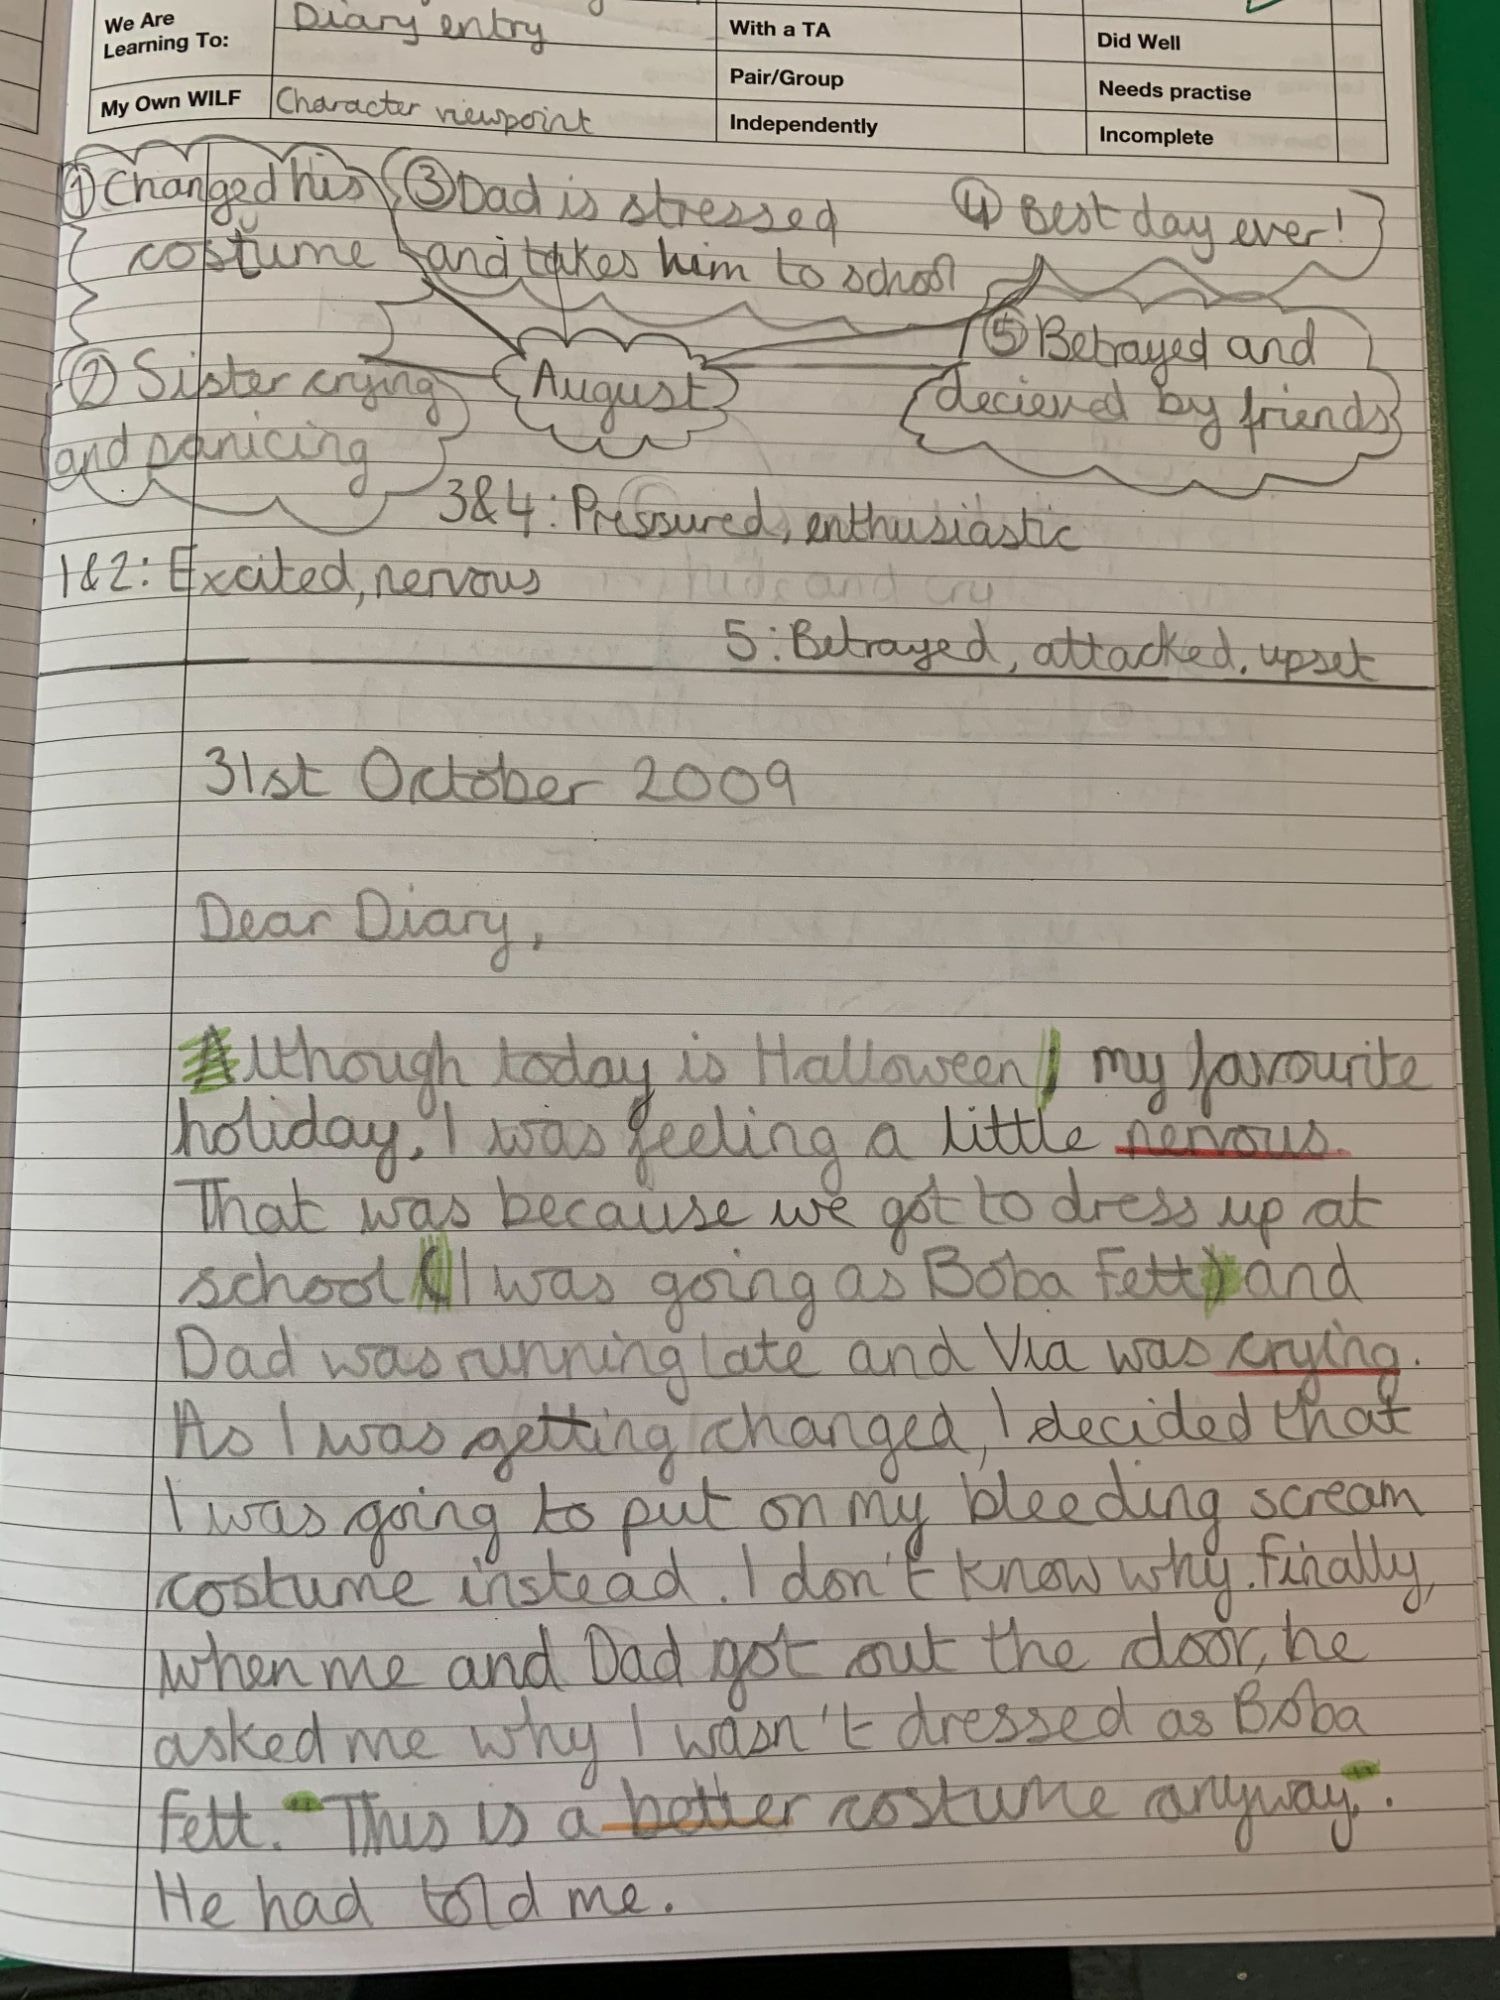 We Are
Learning To:
Diary entry
With a TA
Did Well
Pair/Group
Needs practise
My Own WILF
Character viewpoint
Independently
Incomplete
① Changed his
costume
③ Dad is stressed
and takes him to school
④ Best day ever!
② Sister crying
and panicing
August
⑤ Betrayed and
decieved by friends
3&4: Pressured, enthusiastic
1&2: Excited, nervous
hide and cry
5: Betrayed, attacked, upset
31st October 2009
Dear Diary,
Although today is Halloween, my favourite
holiday, I was feeling a little nervous.
That was because we got to dress up at
school (I was going as Boba Fett) and
Dad was running late and Via was crying.
As I was getting changed, I decided that
I was going to put on my bleeding scream
costume instead. I don't know why. Finally,
when me and Dad got out the door, he
asked me why I wasn't dressed as Boba
Fett. "This is a better costume anyway".
He had told me.